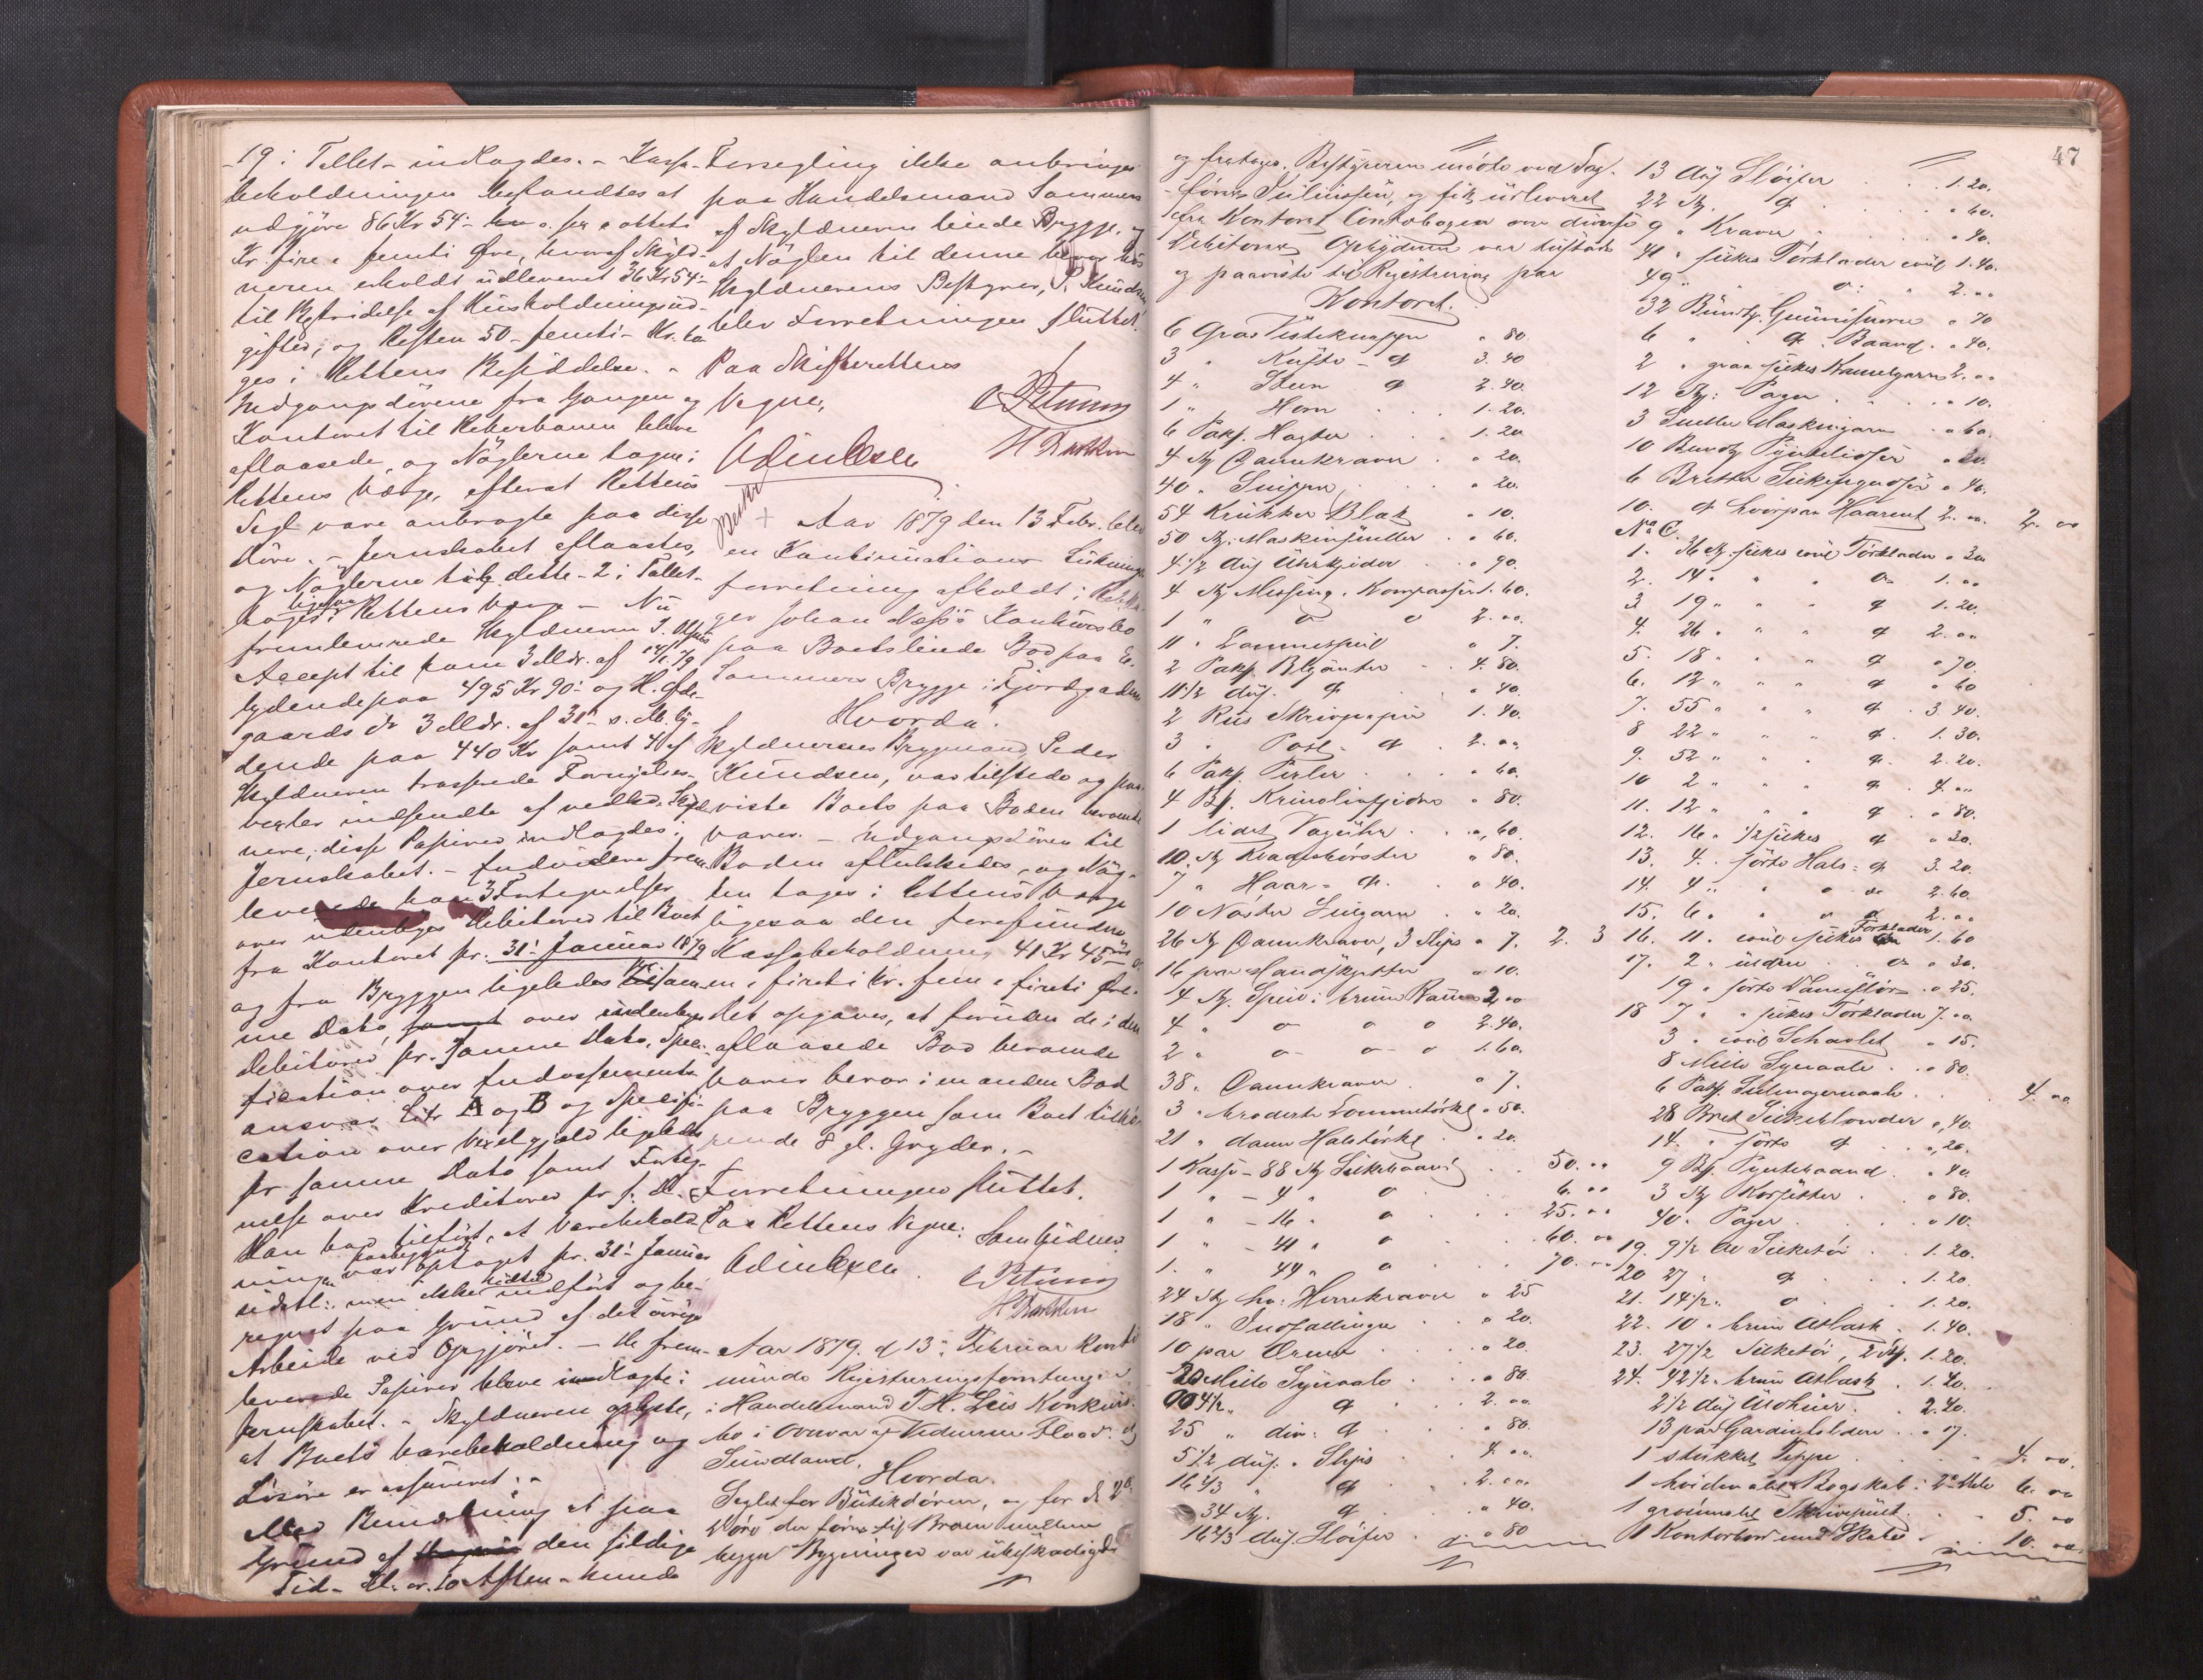 19 i Tallet indlagdes. - Kasse-
beholdningen befandtes at
udgjöre 86 Kr 54 - sex o otteti
Kr. fire o femti Øre, hvoraf Skyld-
neren erholdt udleveret 36 Kr 54 -
til Bestridelse af Husholdningsud-
gifter, og Resten 50 - femti - Kr. ta-
ges i Rettens Besiddelse. -
Indgangsdörene fra Gangen og
Kontoret til Kleberboden bleve
aflaasede, og Nöglerne tagne i
Rettens Værge, efterat Rettens
Segl vare anbragte paa disse
Döre. - Jernskabet aflaastes,
og Nöglerne til dette - 2 i Tallet -
toges ligesaa i Rettens Værge - Nu
fremleverede Skyldneren J. Olsens
Accept til ham 3 Mdr. af 14/1 79
lydende paa 495 Kr 90 - og H. Ofde-
gaards do 3 Mdr. af 31 - s. M. ly-
dende paa 440 Kr samt 4 af
Skyldneren trasserede Fornyelses-
vexler indsendte af vedkd.
nere; disse Papirer indlagdes i
Jernskabet. - Endvidere frem-
leverede han 3 Fortegnelser
over udenbyes Debitorer til Boet
fra Kontoret pr. 31 Januar 1879
og fra Bryggen ligeledes til sam-
me Dato, over indenbyes
Debitorer pr. samme Dato, Speci-
fication over Endossements-
ansvar Litr A og B og Specifi-
cation over Vexelgjæld ligeledes
pr samme Dato samt Forteg-
nelse over Kreditorer pr s. D.
Han har tilfört, at Varebehold-
ningen var paabegyndt optaget pr. 31 - Januar
sidstl: men ikke hidtil indfört og be-
regnet paa Grund af det övrige
Arbeide ved Opgjöret. - De frem-
leverede Papirer bleve indlagte i
Jernskabet. - Skyldneren oplyste,
at Boets Varebeholdning og
Lösöre er assureret. -
Med Bemærkning at paa
Grund af den sildige
Tid - Kl. er 10 Aften - kunde
Forsegling ikke anbringes
paa Handelsmand Sommers
af Skyldneren leiede Brygge, og
at Nöglen til denne beror hos
Skyldnerens Bestyrer, P. Knudsen
blev Forretningen sluttet.
Paa Skifterettens
Vegne,
Aar 1879 den 13 Febr. blev
en Kontinuations Lukknings-
forretning afholdt i
ger Johan Næss's Konkursbo
paa Boets leiede Bod paa E.
Sommers Brygge i Fjordgaden
Hvorda:
Skyldnerens Bryggemand, Peder
Knudsen, var tilstede og paa-
viste Boets paa Boden beroende
Varer. - Udgangsdören til
Boden aflukkedes, og Nög-
len tages i Rettens Værge
ligesaa den forefundne
Kassebeholdning 41 Kr 45 Øre
en o firti Kr. fem o firti Øre.
Det opgaves, at foruden de i den
aflaasede Bod beroende
Varer beror i en anden Bod
paa Bryggen som Boet tilhö-
rende 8 gl. Gryder. -
Forretningen sluttet.
Paa Rettens Vegne:
Som Vidner:
Aar 1879. d 13 - Februar Konti-
nuerede Registreringsforretningen
i Handelsmand T. H. Leis Konkurs-
bo i Overvær af Vidnerne Flood og
Sundland.
Hvorda.
Seglet for Butikdören, og for de 2de
Döre der förer til Broen mellem
begge Bygninger var ubeskadigede
47
og fratoges. Bestyreren mödte ved Sag-
förer Juliussen, og fik udleveret
fra Kontoret Contobogen over diverse
Debitorer. Opbyderen var tilstede
og paaviste til Registrering paa
Kontoret.
6 Gros Vesteknapper " 80.
3 " Kaste - do 3. 40
4 " Steen do 2. 40.
1 " Horn . . 1. 20.
6 Pakk. Hagter . . 1. 20
4 St Damekraver . " 20.
40 " Snipper . . " 20.
54 Krukker Blæk " 10.
50 St. Maskinsneller . " 60.
4 1/2 dus Uhrkjeder . " 90.
4 St Messing. Kompasser 1. 60.
1 " do do 2. "
11 " Lommespeil " 7.
2 Pakk. Blyanter . . 4. 80.
11 1/2 dus. do . " 40.
2 Riis Skrivpapir 1. 40.
3 " Post - do . 2. "
6 Pakk. Perler . . " 60.
4 Bt. Krinolinfjedre " 80.
1 lidet Vægühr . . ", 60.
10. St Klædebörster " 80.
7 " Haar - do. . " 40.
10 Nöster Liingarn . " 20.
26 St Damekraver, 3 Slips " 7. 2. 3
16 par Handsketter " 10.
4 St. Speil i brun Ramme 2 "
4 " do do do 2. 40.
2 " do do do 1. 60.
38 " Damekraver . " 7.
3 " broderte Lommetörkl " 50.
21 " dame Halstörkl . " 20.
1 Kasse - 88 St Silkebaand . . 50. "
1 " - 4 " do . . 6. "
1 " - 16 " do . . 25. "
1 " - 41 " do . . 60. "
1. " 49 " do . . 70. "
24 St hv: Herrekraver " 25
18 " Indfatninger . . " 20.
10 par Ærmer . . " 20
20 Mille Synaale . . " 80.
4 1/2 " do . 2. "
25 " div: do . " 80.
5 1/2 dus. " Slips . 4. "
16 2/3 " do . 2. "
34 St. do . " 40.
16 2/3 dus Slöifer . " 80
13 dus Slöifer . . 1. 20.
22 St. do . . . " 60.
9 " Kraver . . " 40.
41 " silkes Törklæder coul 1. 40.
49 " do " 2. "
32 Bundt. Gummisnore " 70
6 " do . Baand. " 40.
2 " graa silkes Kamelgarn 2. "
12 St: Pager . . . " 10.
3 Sneller Maskingarn . " 60.
10 Bundt Pyntelidser " 20.
6 Bretter Silkefryndser " 40.
10. do hvorpaa Haarnet 2. " 2. "
No C.
1. 36 St silkes coul Törklæder " 30
2. 14 " " do 1. "
3. 19 " " " do 1. 20.
4. 26 " " " do 2. "
5. 18 " " " do " 70.
6. 12 " " " do " 60
7. 55 " " " do . 3. 40.
8 22 " " " do . 1. 30.
9. 52 " " " do . 2. 20.
10 2 " " " do . 4. "
11. 12 " " " do . " 80.
12. 16 " 1/2 silkes do " 30.
13. 4 " sorte Hals - do 3. 20.
14. 4 " " " do 2. 60
15. 6 " " " do 2. "
16. 11. coul silkes Törklæder 1. 60
17. 2 " uldne . do " 30.
19 " sorte Dameslör " 25.
18 7 " " silkes Törklæder 7. "
3 " coul Schavlet . " 15.
8 Mille Synaale . . " 80.
6 Pakk. Seilmagernaale . . 4. "
28 Bret Silkeblonder ", 40.
14. " sorte do . ", 20.
9 Bt. Pyntebaand . " 40.
3 St Korsetter . . " 80.
40 " Pager . . . " 10.
19. 9 1/2 Al Silketöi . . 1. 20.
20 27 " do . . 1. 20.
21. 14 1/2 " do . . 1. 20.
22. 10 " brun Atlask . 1. 40.
23. 27 1/2 Silketöi, 2 St. 1. 20.
24. 42 1/2 " brun Atlask . 1. 40.
2 1/2 dus . 2. 40.
13 par Gardinholdere . " 7.
1 stukket Teppe . . 4. "
1 hvidmalet Bogskab i 2de Dele 6. "
1 grönmalet Skrivepult . . 5. "
1 Kontorbord med Skabe . 10. "